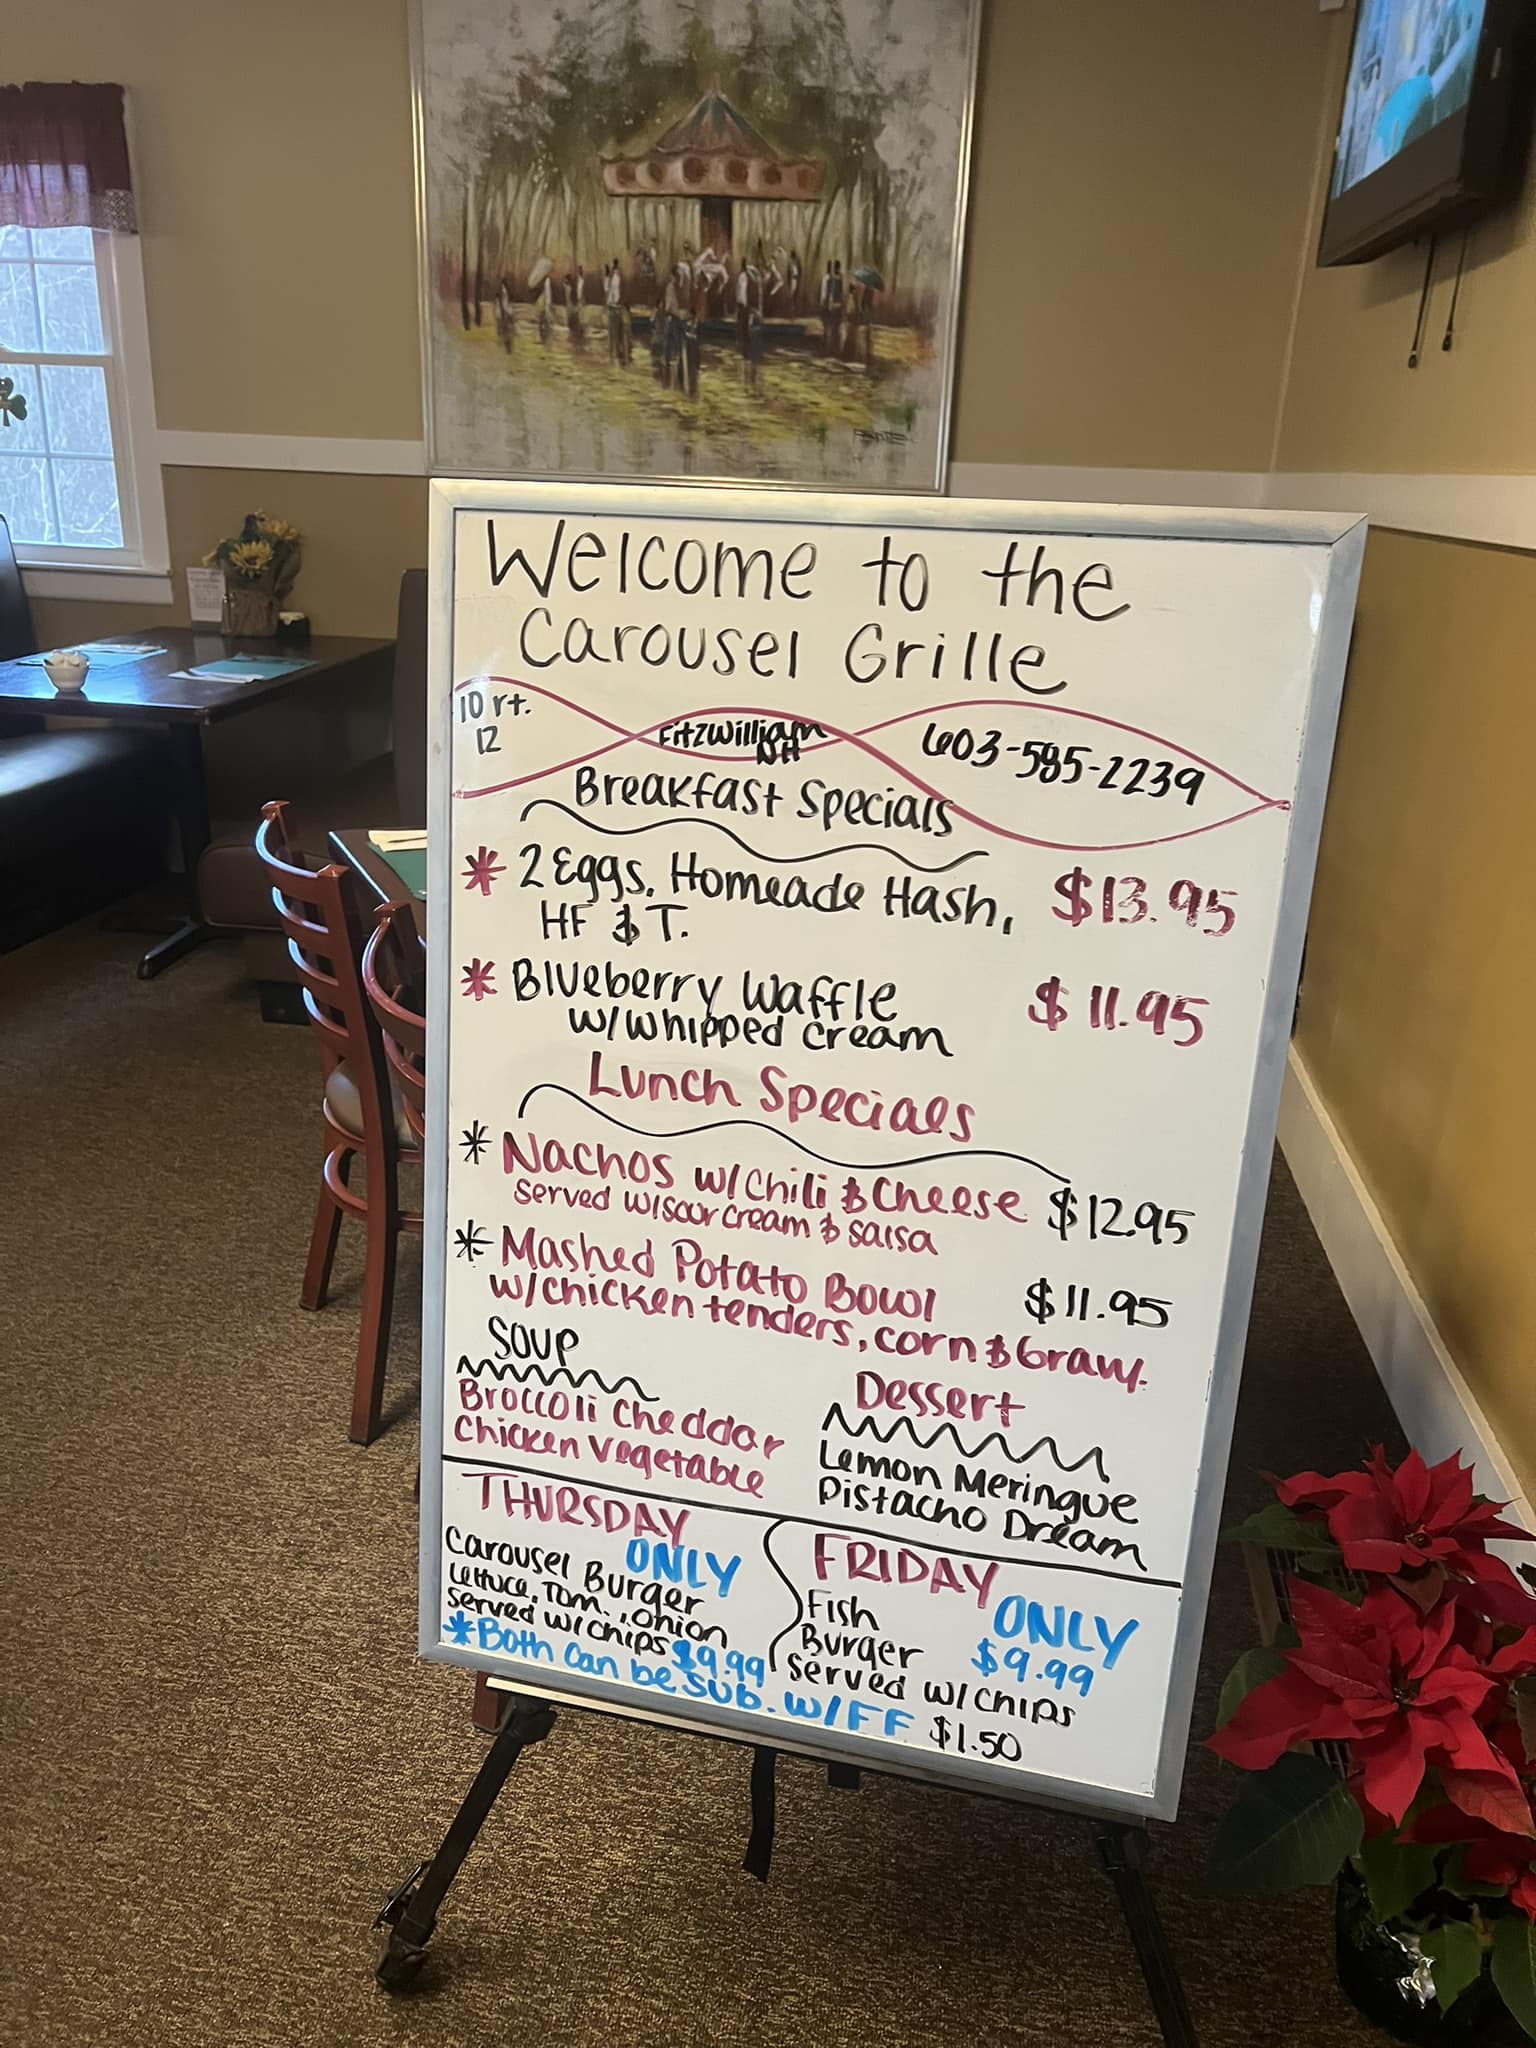 Welcome to the
Carousel Grille
10 rt.
12
Fitzwilliam
NH
603-585-2239
Breakfast Specials
* 2 Eggs, Homeade Hash,
HF & T.
$13.95
* Blueberry Waffle
w/whipped cream
$11.95
Lunch Specials
* Nachos w/chili & cheese
served w/sour cream & salsa
$12.95
* Mashed Potato Bowl
w/chicken tenders, corn & Gravy.
$11.95
Soup
Broccoli Cheddar
Chicken Vegetable
Dessert
Lemon Meringue
Pistacho Dream
THURSDAY
ONLY
Carousel Burger
Lettuce, Tom., onion
served w/chips $9.99
FRIDAY
ONLY
Fish
Burger $9.99
served w/chips
*Both can be sub. w/FF $1.50